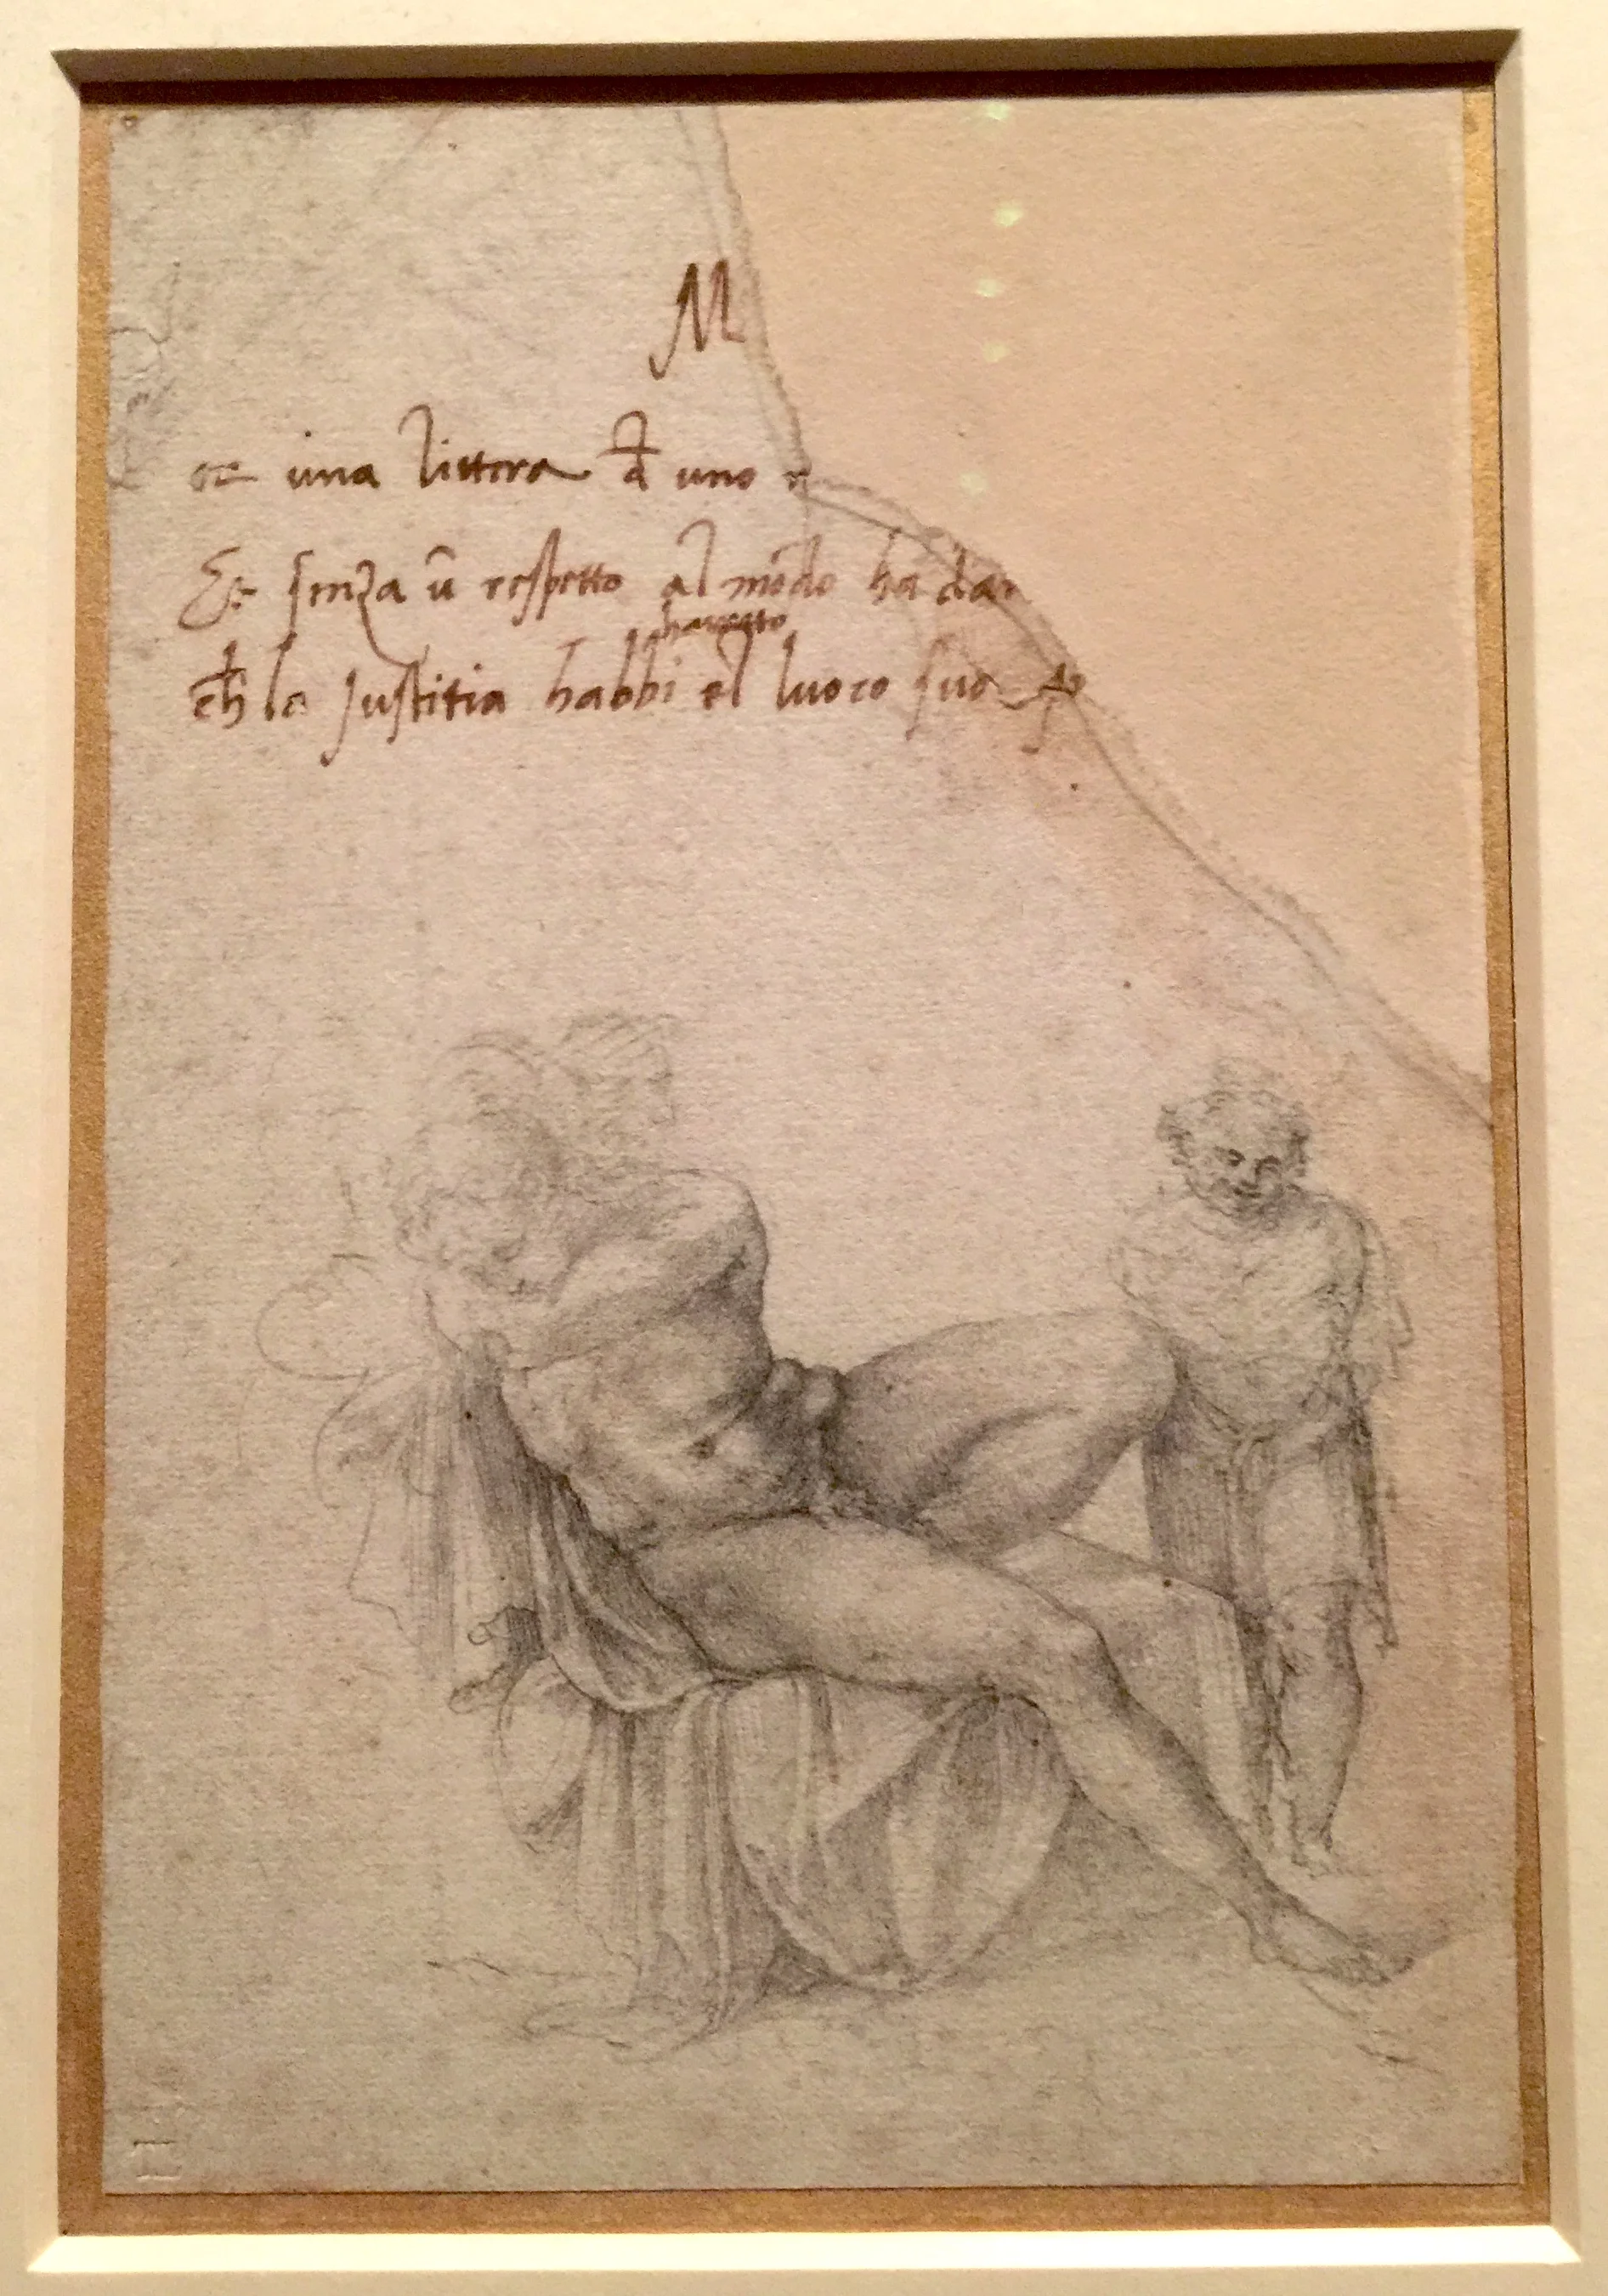 M
una littera đ uno
Et senza ū respetto al mōdo ha da
havesto
ch la Justitia habbi el luoco suo